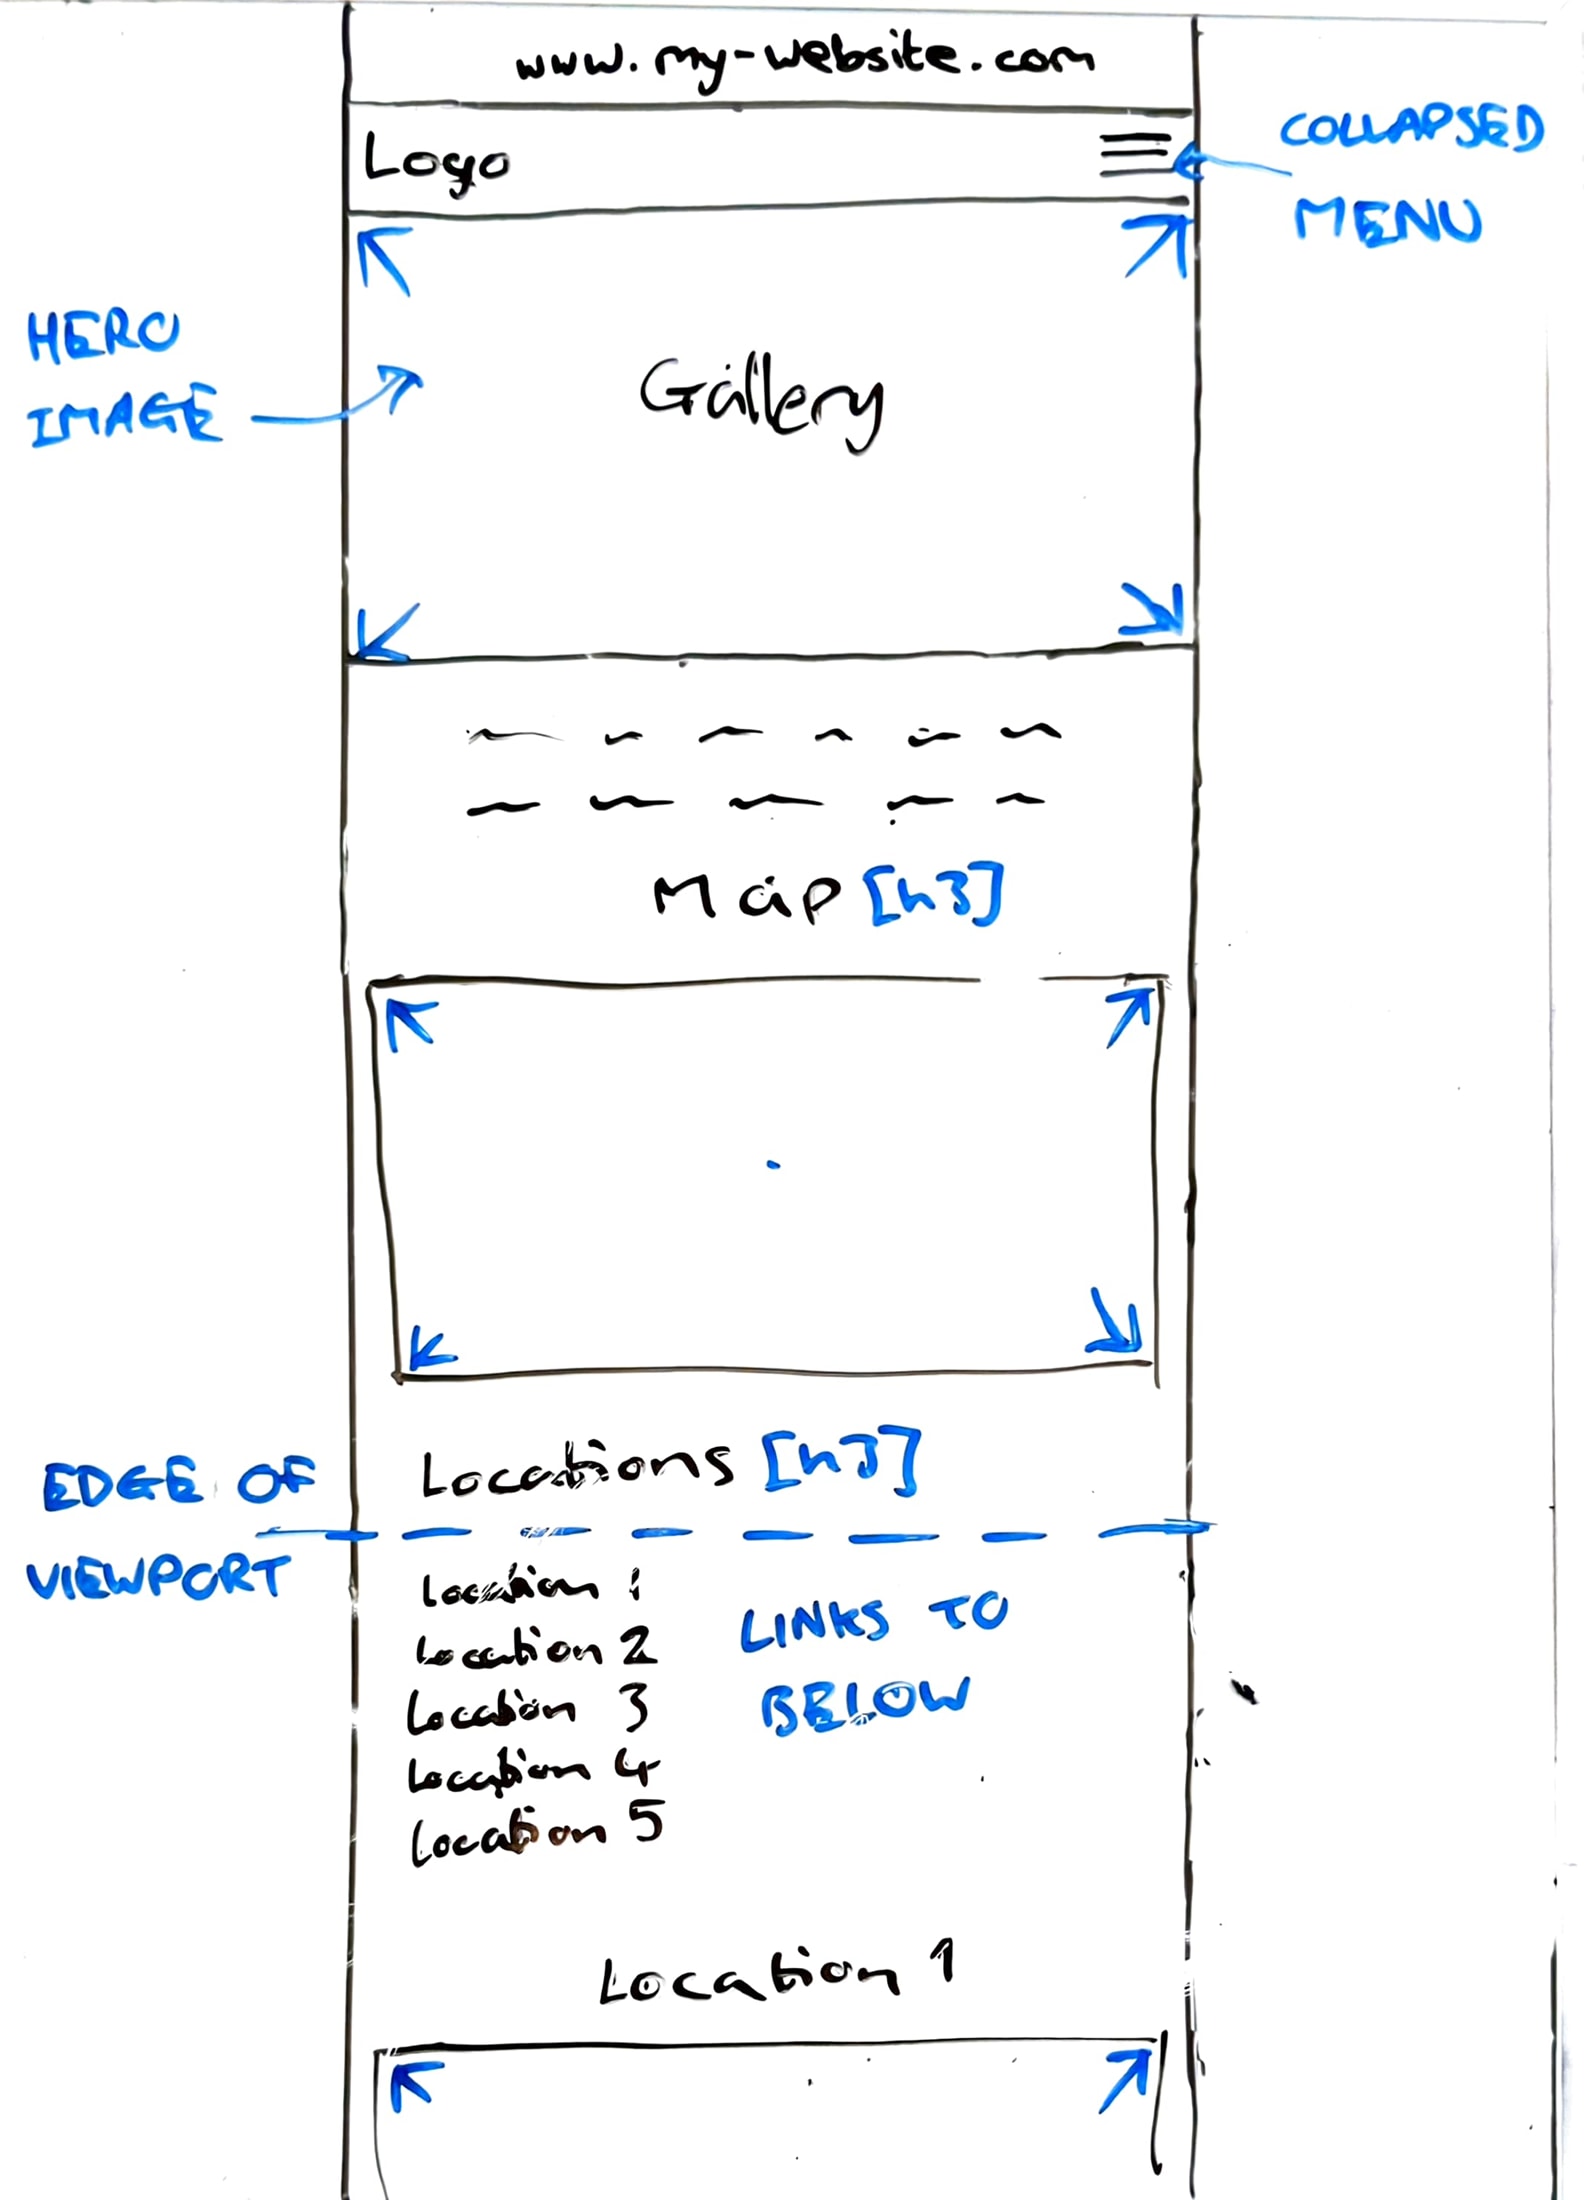 www.my-website.com
Logo
COLLAPSED
MENU
HERO
IMAGE
Gallery
Map [h3]
Locations [h3]
EDGE OF
VIEWPORT
Location 1
Location 2
Location 3
Location 4
Location 5
LINKS TO
BELOW
Location 1